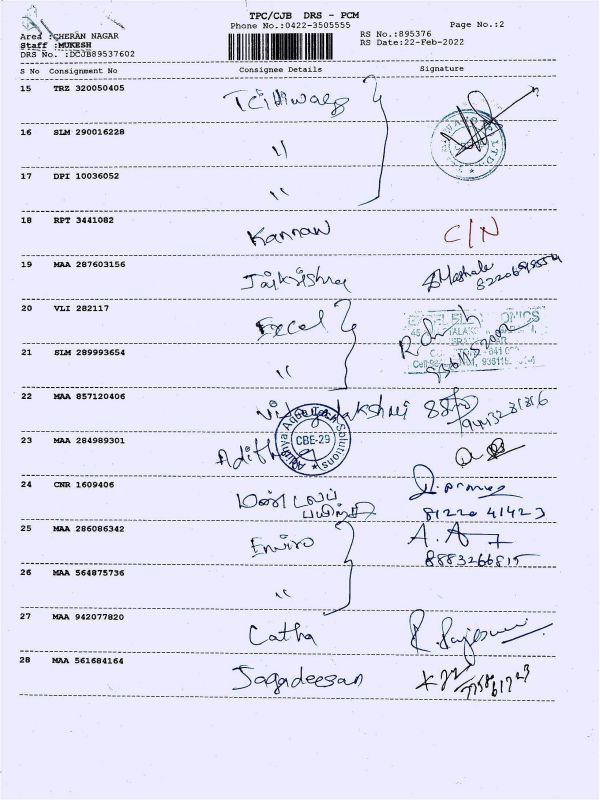 TPC/CJB DRS - PCM
Phone No.:0422-3505555
Page No.:2
Area :CHERAN NAGAR
Staff :MUKESH
DRS No. :DCJB89537602
RS No.:895376
RS Date:22-Feb-2022
S No Consignment No Consignee Details Signature
15 TRZ 320050405
16 SLM 290016228 "
17 DPI 10036052 "
18 RPT 3441082 Kannan C/N
19 MAA 287603156 Jaikrishna
20 VLI 282117 Excel
21 SLM 289993654 "
22 MAA 857120406
23 MAA 284989301
CBE-29
24 CNR 1609406 மண்டலப்
பயிற்சி
81220 41423
25 MAA 286086342 Enviro A.A
8883266815
26 MAA 564875736 "
27 MAA 942077820 Catha
28 MAA 561684164 Jagadeesan